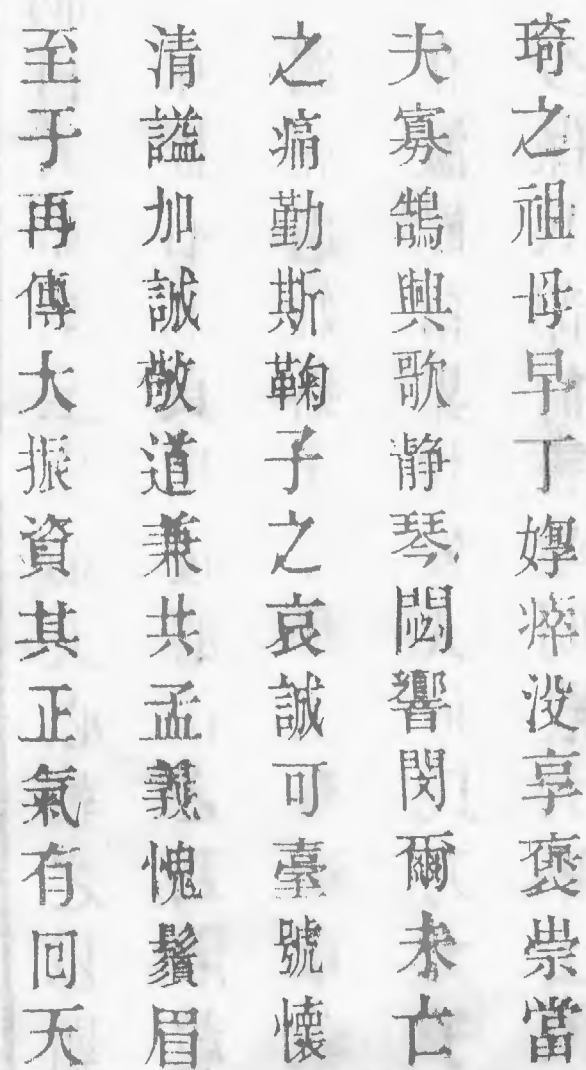 琦之祖母早丁㷀瘁没享褒崇當
夫寡鵠興歌静琴閟響閔爾未亡
之痛勤斯鞠子之哀誠可臺號懐
清謚加誠敬道兼共孟義愧鬚眉
至于再傳大振資其正氣有回天